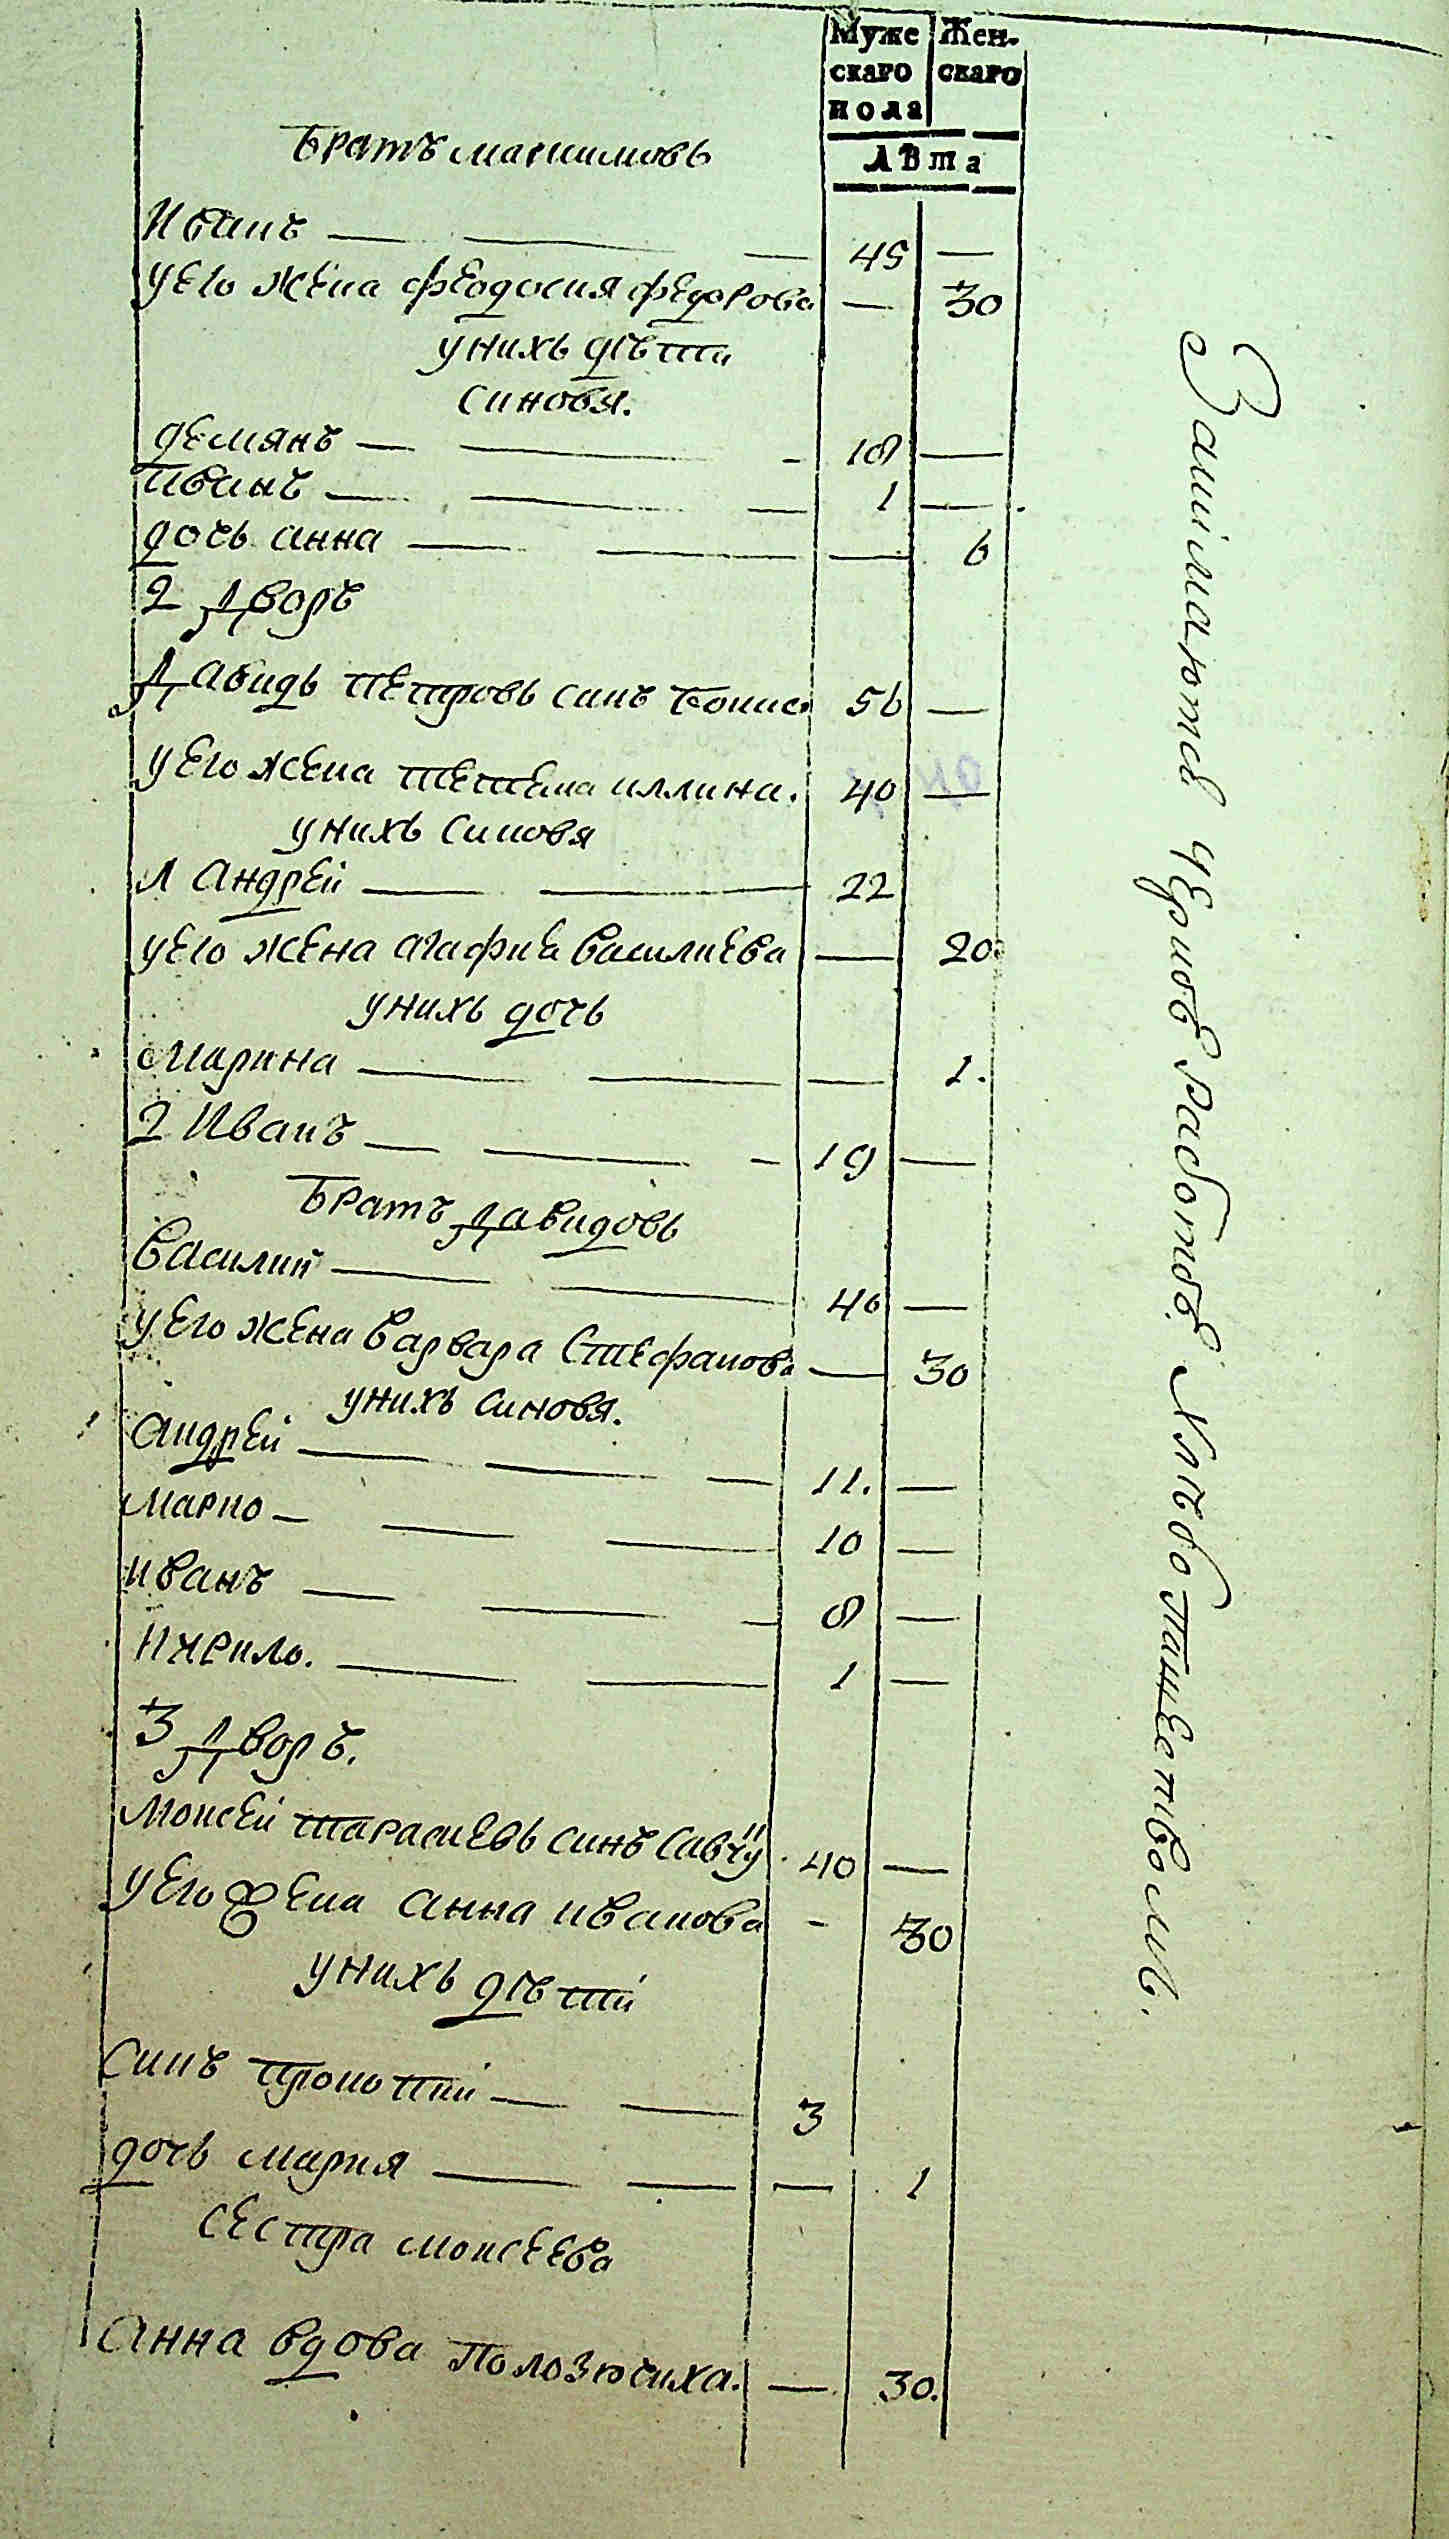 Муже Жен-
скаго скаго
пола
Лѣта
Братъ максимовь
Иванъ — 45 —
уего жена феодосия федорова — 30
унихь дѣти
синовя.
демянъ — 18 —
иванъ — 1 —
дочь анна — — 6
2 Дворъ
Давидь петровь синъ 56 —
уего жена иллина. 40 —
унихь синовя
1 Андрей — 22
уего жена агафия василиева — 20.
унихь дочь
Марина — — 1.
2 Иванъ — 19 —
Братъ Давидовь
Василий — 40 —
уего жена варвара Стефанова — 30
унихь синовя.
Андрей — 11. —
марко — 10 —
иванъ — 8 —
кирило. — 1 —
3 Дворъ.
Моисей тарасиевь синъ 40 —
уего жена анна иванова - 30
унихь дѣти
синъ прокопий — 3
дочь мария — — 1
сестра моисеева
анна вдова Полозючиха. — 30.
Хлѣбопашествомъ.